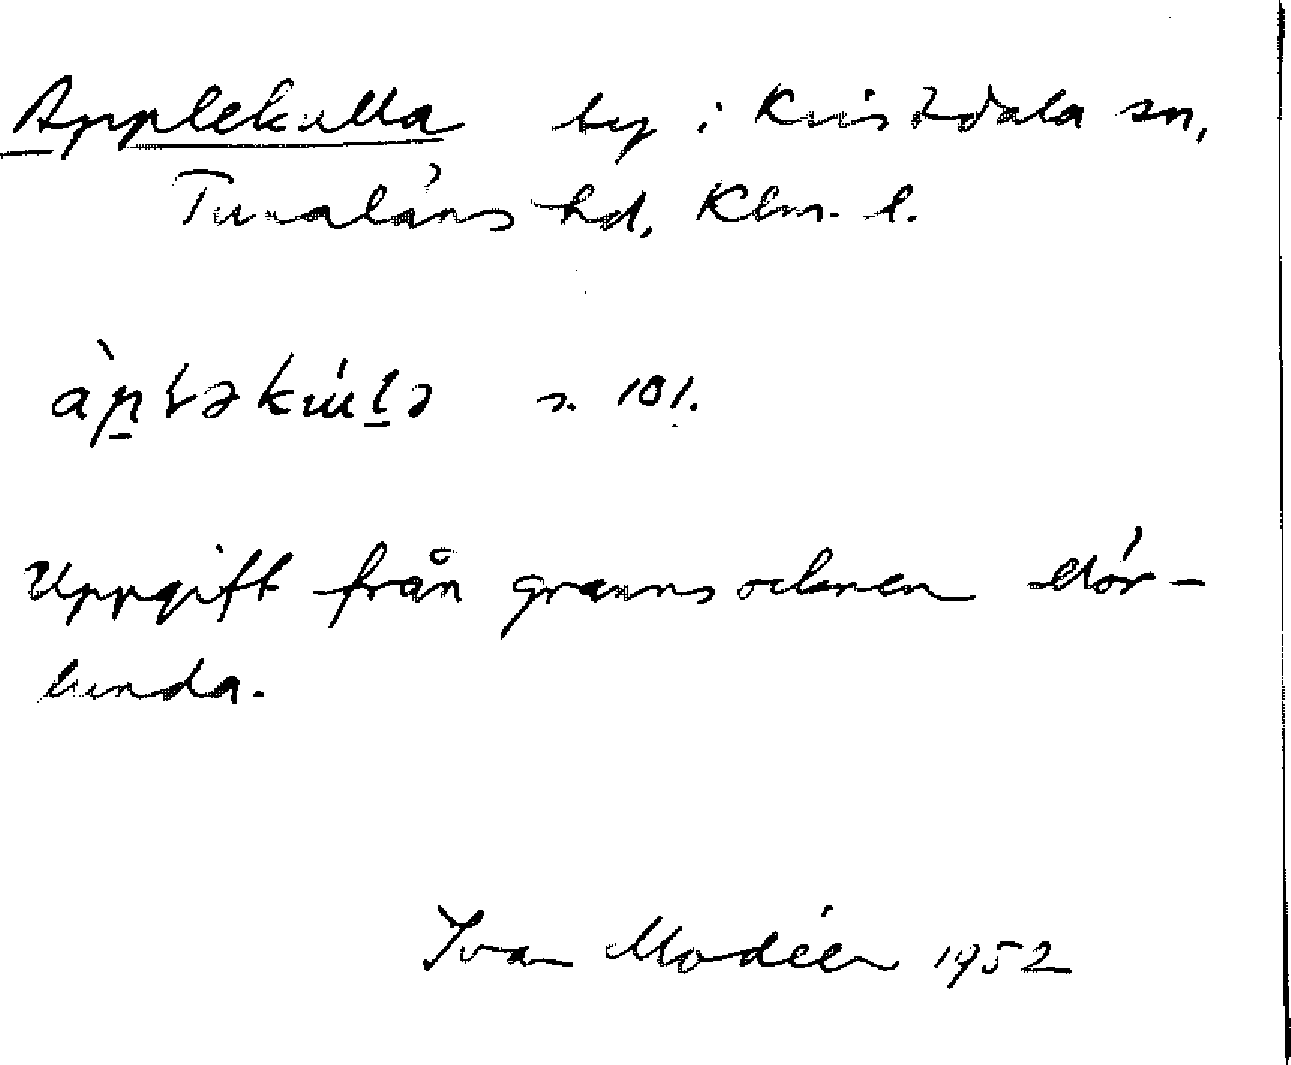 Applekulla by i Kristdala sn,
Tunaläns hd, Klm. l.
s. 101.
Uppgift från grannsocknen Mör-
lunda.
Ivan Modéer 1952